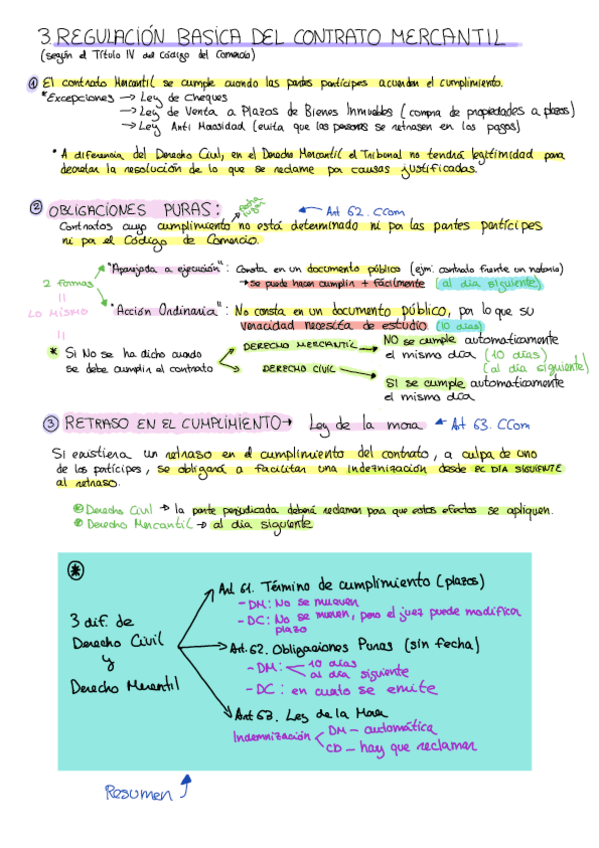 3. REGULACIÓN BASICA DEL CONTRATO MERCANTIL
(según el Título IV del Código del Comercio)
① El contrato Mercantil se cumple cuando las partes partícipes acuerden el cumplimiento.
*Excepciones → Ley de Cheques
→ Ley de Venta a Plazos de Bienes Inmuebles (compra de propiedades a plazos)
→ Ley Anti Morosidad (evita que las personas se retrasen en los pagos)
* A diferencia del Derecho Civil, en el Derecho Mercantil el Tribunal no tendrá legitimidad para
decretar la resolución de lo que se reclame por causas justificadas.
② OBLIGACIONES PURAS: fecha lugar ← Art 62. CCom
Contratos cuyo cumplimiento no está determinado ni por las partes partícipes
ni por el Código de Comercio.
2 formas
"Aparejada a ejecución": Consta en un documento público (ejm: contrado frente un notario)
→ se puede hacer cumplir + fácilmente (al día siguiente)
||
LO MISMO
||
"Acción Ordinaria": No consta en un documento público, por lo que su
veracidad necesita de estudio (10 días)
* Si No se ha dicho cuando
se debe cumplir el contrato
DERECHO MERCANTIL → NO se cumple automaticamente
el mismo día (10 días)
(al día siguiente)
DERECHO CIVIL → SI se cumple automaticamente
el mismo día
③ RETRASO EN EL CUMPLIMIENTO → Ley de la mora ← Art 63. CCom
Si existiera un retraso en el cumplimiento del contrato, a culpa de uno
de los partícipes, se obligará a facilitar una indemnización desde EL DIA SIGUIENTE
al retraso.
Derecho Civil → la parte perjudicada deberá reclamar para que estos efectos se apliquen.
Derecho Mercantil → al día siguiente
*
3 dif. de
Derecho Civil
y
Derecho Mercantil
Art 61. Término de cumplimiento (plazos)
- DM: No se mueven
- DC: No se mueven, pero el juez puede modificar
plazo
Art. 62. Obligaciones Puras (sin fecha)
- DM: 10 días
al día siguiente
- DC: en cuato se emite
Art 63. Ley de la Mora
Indemnización DM - automática
CD - hay que reclamar
Resumen